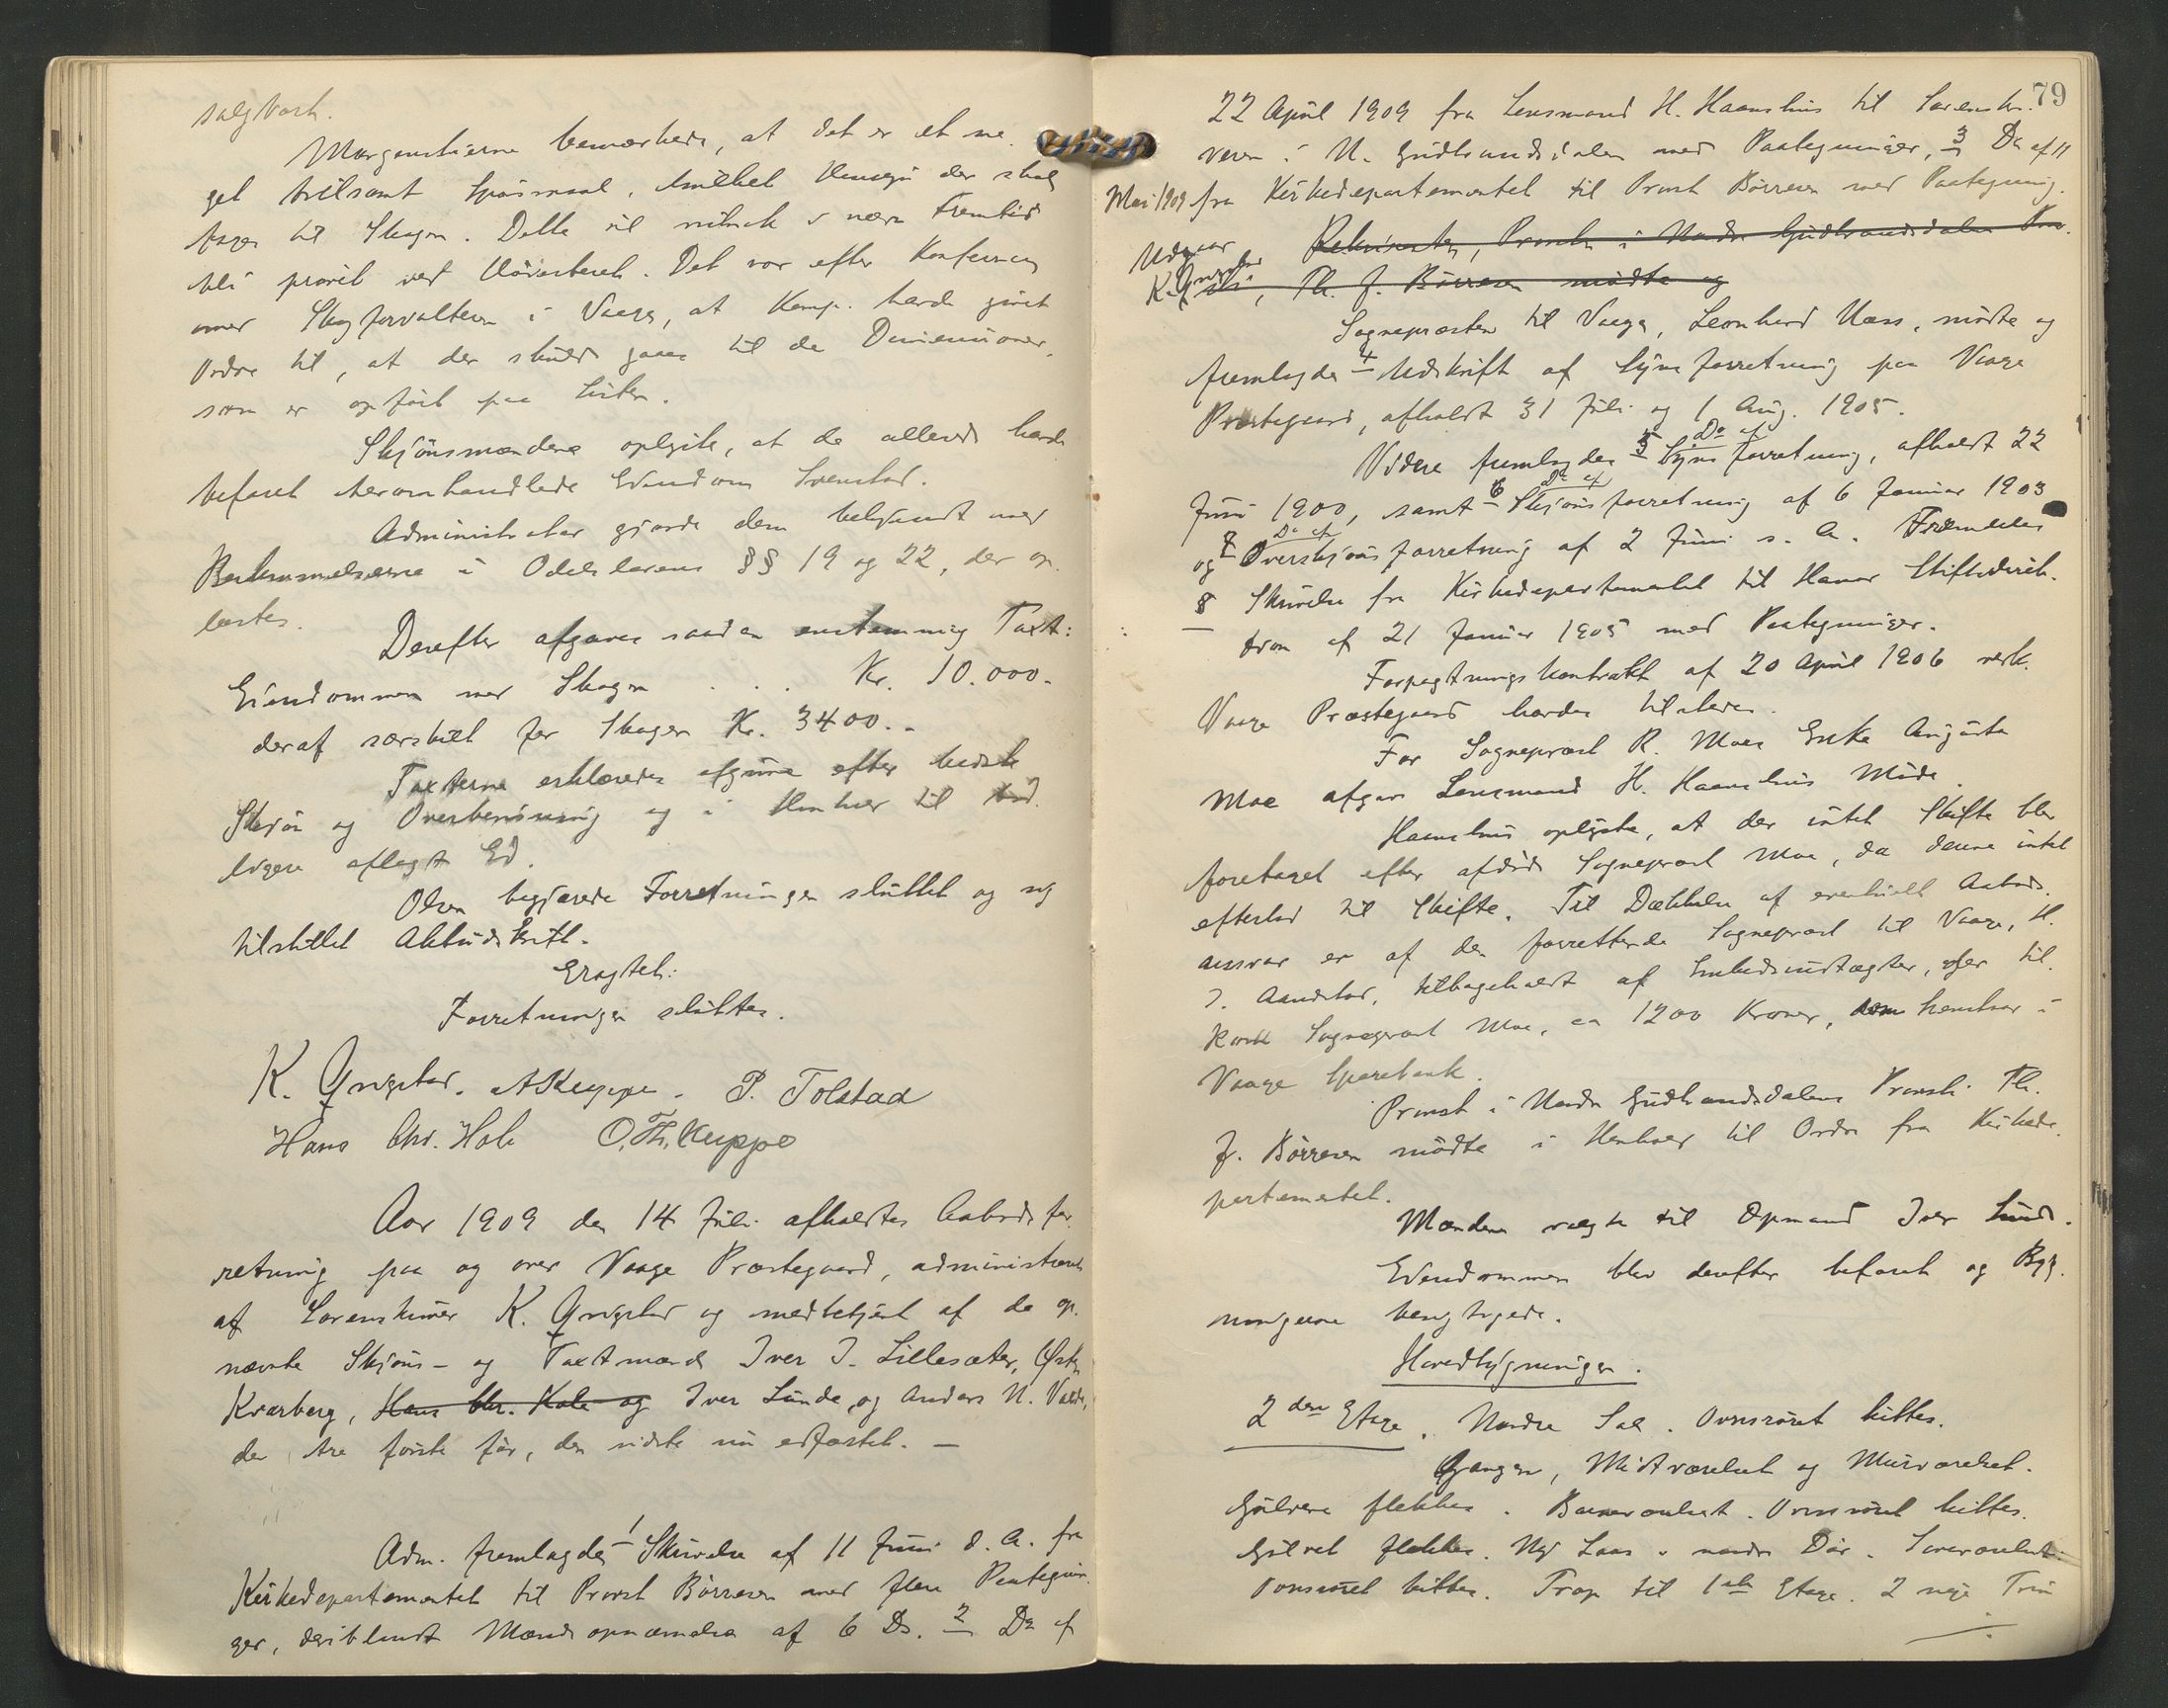 salgbart.
Morgenstierne bemærkede, at det er et me-
get tvilsomt Spørsmaal, hvilket Hensyn der skal
tages til Skogen. Dette vil nemlig i nær Fremtid
bli prøvet ved Høiesteret. Det var efter Konferance
med Skogforvalteren i Vaage, at Komp. havde givet
Ordre til, at der skulde gaaes til de Dimensioner,
som er opført paa Listen.
Skjønsmændene oplyste, at de allerede havde
befaret heromhandlede Eiendom Svenstad.
Administrator gjorde dem bekjendt med
Bestemmelserne i Odelslovens §§ 19 og 22, der op-
læstes.
Derefter afgaves saadan enstemmig Taxt:
Eiendommen med Skogen . . . Kr. 10.000.-
deraf særskilt for Skogen Kr. 3400.-
Taxterne erklæredes afgivne efter bedste
Skjøn og Overbevisning og i Henhold til tid-
ligere aflagt Ed.
Olsen begjærede Forretningen sluttet og sig
tilstillet Aktudskrift.
Eragtet:
Forretningen sluttes.
K. Yngstad. A Kleppe. P. Tolstad
Hans Chr. Hole O. Th. Kleppe
Aar 1909 den 14 Juli afholdtes Aabodsfor-
retning paa og over Vaage Præstegaard, administreret
af Sorenskriver K. Yngstad og medbetjent af de op-
nævnte Skjøns- og Taxtmænd Iver I. Lillesæter, Østen
Kvarberg, Hans Chr. Hole og Iver Sunde, og Anders N. Valde,
de tre første før, den sidste nu edfæstet. —
Adm. fremlagdes 1 Skrivelse af 11 Juni d. A. fra
Kirkedepartementet til Provst Børresen med flere Paategnin-
ger, deriblandt Mændsopnævnelse af 6 Ds. 2 Do af
79
22 April 1909 fra Lensmand H. Haanshus til Sorenskri-
veren i N. Gudbrandsdalen med Paategninger, 3 Do af 11
Mai 1909 fra Kirkedepartementet til Provst Børresen med Paategning.
Udgaar Rekvirenten, Provsten i Nordre Gudbrandsdalen Pro-
K. Yngstad sti, Th. J. Børresen mødte og
Sognepræsten til Vaage, Leonhard Næss, mødte og
fremlagde 4 Udskrift af Synsforretning paa Vaage
Præstegaard, afholdt 31 Juli og 1 Aug. 1905.
Do af
Videre fremlagdes 5 Synsforretning, afholdt 22
Do af
Juni 1900, samt 6 Skjønsforretning af 6 Januar 1903
Do af
og 7 Overskjønsforretning af 2 Juni s. A. Fremdeles
8 Skrivelse fra Kirkedepartementet til Hamar Stiftsdirek-
tion af 21 Januar 1905 med Paategninger.
Forpagtningskontrakt af 20 April 1906 vedk.
Vaage Præstegaard havdes tilstede.
For Sognepræst R. Moes Enke Augusta
Moe afgav Lensmand H. Haanshus Møde.
Haanshus oplyste, at der intet Skifte blev
foretaget efter afdøde Sognepræst Moe, da denne intet
efterlod til Skifte. Til Dækkelse af eventuelt Aabods-
ansvar er af den forrettende Sognepræst til Vaage, H.
J. Aandstad, tilbageholdt af Embedsindtægter, efter til
Sognepræst Moe, ca 1200 Kroner, som henstaar i
Vaage Sparebank.
Provst i Nordre Gudbrandsdalens Provsti Th.
J. Børresen mødte i Henhold til Ordre fra Kirkede-
partementet.
Mændene valgte til Opmand Iver Sunde.
Eiendommen blev derefter befaret og Byg-
ningerne besigtigede.
Hovedbygningen.
2den Etage. Nordre Sal. Ovnsrøret kittes.
Gangen, Midtværelset og Murværelset.
Gulvene flekkes. Barneværelset. Ovnsrøret kittes.
Gulvet flekkes. Ny Laas i nordre Dør. Soveværelset:
Ovnsrøret kittes. Trap til 1ste Etage. 2 nye Trin